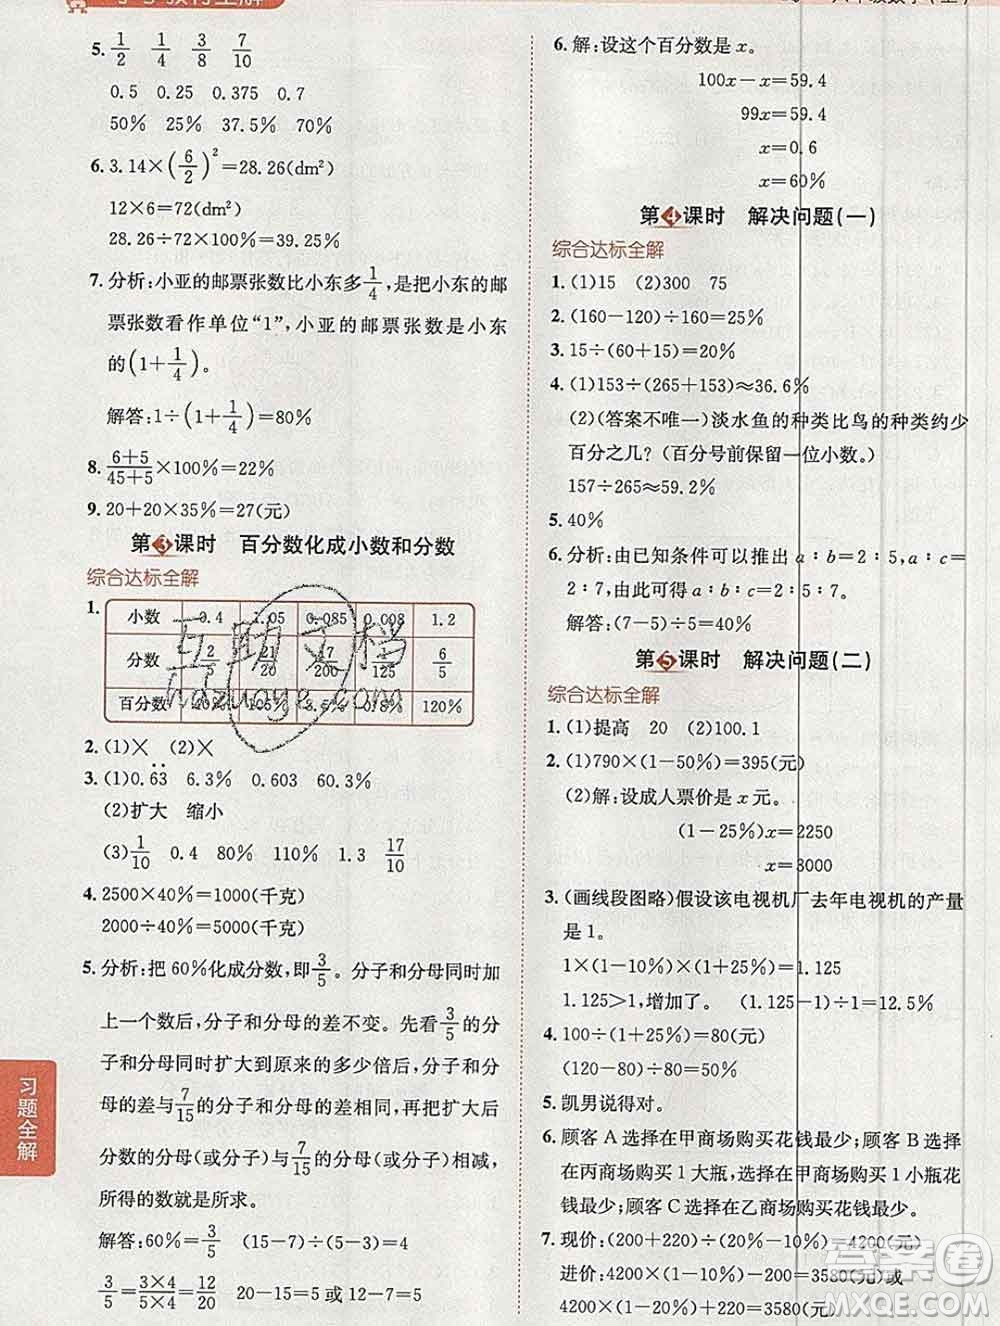 5. 1/2 1/4 3/8 7/10
0.5 0.25 0.375 0.7
50% 25% 37.5% 70%
6. 3.14×(6/2)²=28.26(dm²)
12×6=72(dm²)
28.26÷72×100%=39.25%
7. 分析:小亚的邮票张数比小东多1/4,是把小东的邮
票张数看作单位“1”,小亚的邮票张数是小东
的(1+1/4)。
解答:1÷(1+1/4)=80%
8. (6+5)/(45+5)×100%=22%
9. 20+20×35%=27(元)
第3课时 百分数化成小数和分数
综合达标全解
1. 小数 0.4 1.05 0.085 0.008 1.2
分数 2/5 21/20 17/200 1/125 6/5
百分数 40% 105% 8.5% 0.8% 120%
2. (1)× (2)×
3. (1)0.6̇3̇ 6.3% 0.603 60.3%
(2)扩大 缩小
(3)1/10 0.4 80% 110% 1.3 17/10
4. 2500×40%=1000(千克)
2000÷40%=5000(千克)
5. 分析:把60%化成分数,即3/5。分子和分母同时加
上一个数后,分子和分母的差不变。先看3/5的分
子和分母同时扩大到原来的多少倍后,分子和分
母的差与7/15的分子和分母的差相同,再把扩大后
分数的分母(或分子)与7/15的分母(或分子)相减,
所得的数就是所求。
解答:60%=3/5 (15-7)÷(5-3)=4
3/5=(3×4)/(5×4)=12/20 20-15=5或12-7=5
习题全解
6. 解:设这个百分数是x。
100x-x=59.4
99x=59.4
x=0.6
x=60%
第4课时 解决问题(一)
综合达标全解
1. (1)15 (2)300 75
2. (160-120)÷160=25%
3. 15÷(60+15)=20%
4. (1)153÷(265+153)≈36.6%
(2)(答案不唯一)淡水鱼的种类比鸟的种类约少
百分之几?(百分号前保留一位小数。)
157÷265≈59.2%
5. 40%
6. 分析:由已知条件可以推出a∶b=2∶5,b∶c=
5∶7,由此可得a∶b∶c=2∶5∶7。
解答:(7-5)÷5=40%
第5课时 解决问题(二)
综合达标全解
1. (1)提高 20 (2)100.1
2. (1)790×(1-50%)=395(元)
(2)解:设成人票价是x元。
(1-25%)x=2250
x=3000
3. (画线段图略)假设该电视机厂去年电视机的产量
是1。
1×(1-10%)×(1+25%)=1.125
1.125>1,增加了。 (1.125-1)÷1=12.5%
4. 100÷(1+25%)=80(元)
100÷(1-20%)=125(元)
5. 凯男说得对。
6. 顾客A选择在甲商场购买花钱最少,顾客B选择
在丙商场购买1大瓶,选择在甲商场购买1小瓶花
钱最少,顾客C选择在乙商场购买花钱最少。
7. 现价:(200+220)÷(20%-10%)=4200(元)
进价:4200×(1-10%)-200=3580(元)或
4200×(1-20%)+220=3580(元)
互助文档
hazuoye.com
答案圈
MXQE.COM